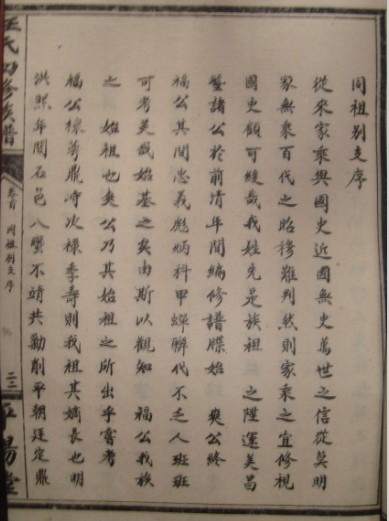 同祖別支序
從來家乘與國史近國無史萬世之信從莫明
家無乘百代之昭穆難列然則家乘之宜修視
國史顧可緩哉我姓先是族祖 之陞運美昌
盤諸公於前清年間編修譜牒始 奐公終
福公其間忠義彪炳科甲蟬聯代不乏人班班
可考美哉始基之矣由斯以觀知 福公我族
之 始祖也奐公乃其始祖之所出乎嘗考
福公標萼鼎峙次祿季壽則我祖其嫡長也明
洪熙年間石邑八蠻不靖共勷削平朝廷定鼎
氏四修族譜
卷首 同祖別支序
二二
陽堂